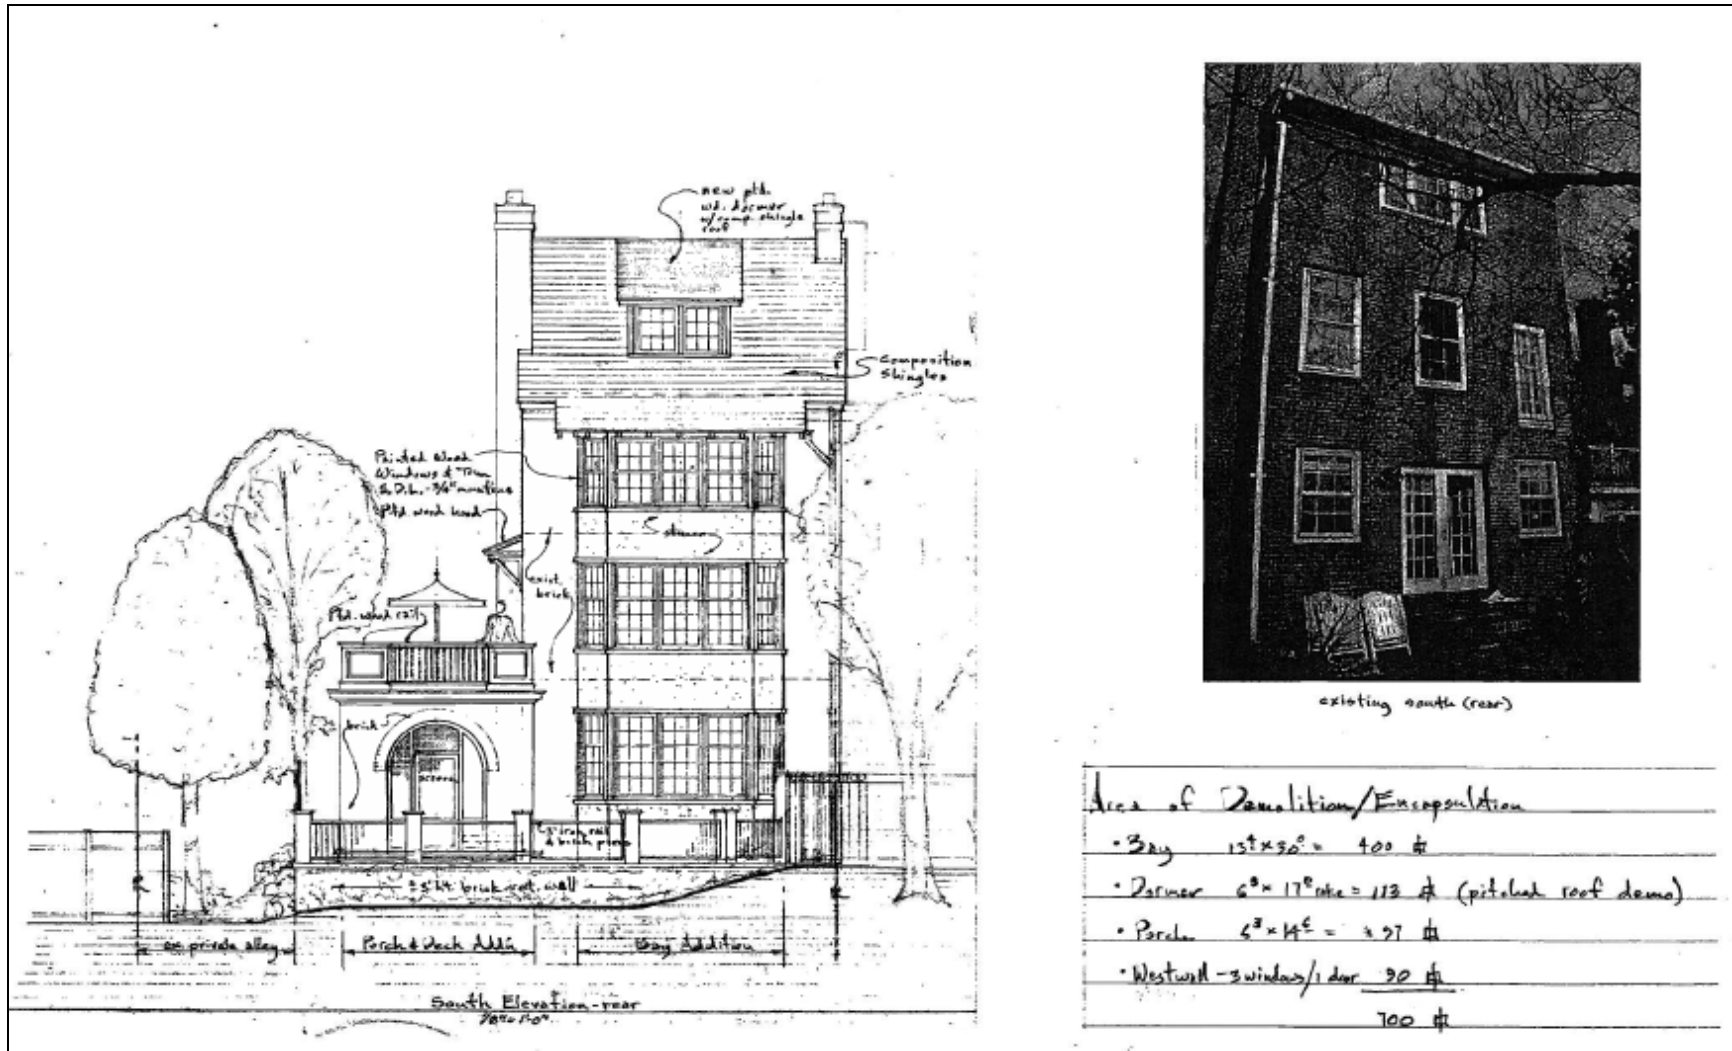 new ptd.
wd. dormer
w/comp. shingle
roof
composition
shingles
Painted Wood
Windows & Trim
S.D.L. - 3/4" muntins
Ptd wood hood
Stucco
exist.
brick
Ptd. wood rail
brick
screen
Ex. iron rail
& brick piers
±3' ht. brick ret. wall
ex. private alley
Porch & Deck Add'n
Bay Addition
South Elevation-rear
existing south (rear)
Area of Demolition/Encapsulation
• Bay 13⁴ x 30⁰ = 400
• Dormer 6⁸ x 17⁰ rake = 113 (pitched roof demo)
• Porch = ± 97
• Westwall - 3 windows/1 door 90
700